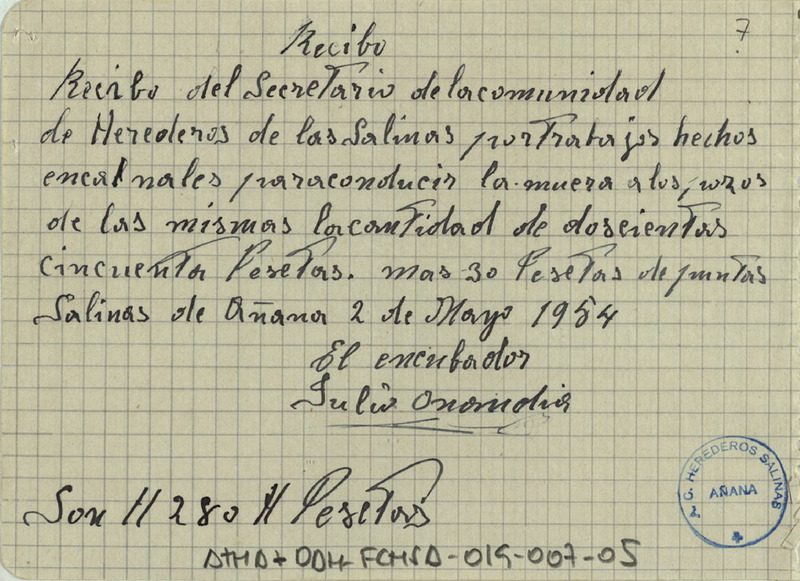 7
Recibo
Recibo del Secretario de lacomunidad
de Herederos de las Salinas por Trabajos hechos
encalnales paraconducir la muera a los pozos
de las mismas lacantidad de doscientas
cincuenta Pesetas. mas 30 Pesetas de puntas
Salinas de Añana 2 de Mayo 1954
El encubador
Julio
Son // 280 // Pesetas
HEREDEROS SALINAS
AÑANA
FCHSA-019-007-05